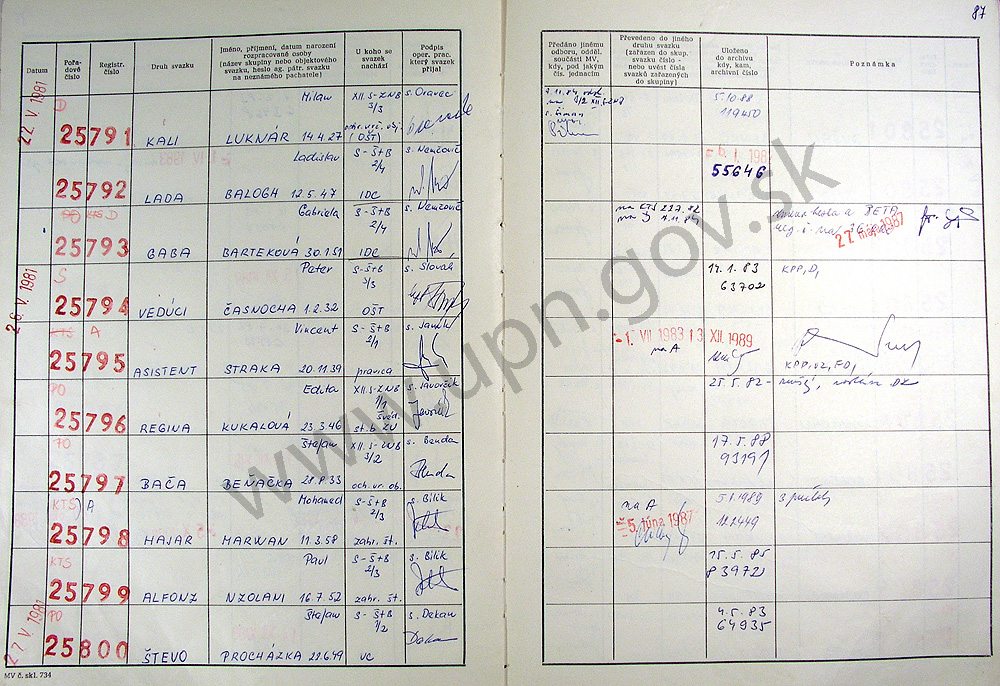 87
Datum
Pořa-
dové
číslo
Registr.
číslo
Druh svazku
Jméno, příjmení, datum narození
rozpracované osoby
(název skupiny nebo objektového
svazku, heslo ag. pátr. svazku
na neznámého pachatele)
U koho se
svazek
nachází
Podpis
oper. prac.
který svazek
přijal
Předáno jinému
odboru, odděl.
součásti MV,
kdy, pod jakým
čís. jednacím
Převedeno do jiného
druhu svazku
(zařazen do skup.
svazku číslo -
nebo uvést čísla
svazků zařazených
do skupiny)
Uloženo
do archivu
kdy, kam,
archivní číslo
Poznámka
22 V. 1981
D
25791
KALI
Milan
LUKNÁR 14.4.27
XII. S-ZNB
3/3
(OŠT)
s. Oravec
7.11.84
5.10.88
119450
25792
LADA
Ladislav
BALOGH 12.5.47
S-ŠtB
2/4
IDC
s. Nemčovič
55646
KTS D
25793
GABA
Gabriela
BARTEKOVÁ 30.1.59
S-ŠtB
2/4
IDC
s. Nemčovič
na KTS 23.7.82
na D 1.11.84
BETA
27 1987
26. V. 1981
S
25794
VEDÚCI
Peter
ČASNOCHA 1.2.32
S-ŠtB
3/3
OŠT
s. Slovák
14.1.83
63702
KPP, D,
KTS A
25795
ASISTENT
Vincent
STRAKA 20.11.39
S-ŠtB
2/1
pravica
-1. VII. 1983
na A
13. XII. 1989
KPP, VZ, FO,
PO
25796
REGINA
Edita
KUKALOVÁ 23.3.46
XII. S-ZNB
1/1
s. Javorčík
25.5.82
PO
25797
BAČA
Štefan
BENAČKA 28.8.33
XII. S-ZNB
3/2
och. vr. ob.
s. Bendan
17.5.88
93191
KTS A
25798
HAJAR
Mohamed
MARWAN 11.3.58
S-ŠtB
2/3
zahr. št.
s. Bilík
na A
5. júna 1987
5.1.1989
KTS
25799
ALFONZ
Paul
NZOLANI 16.7.52
S-ŠtB
2/3
zahr. št.
s. Bilík
15.5.85
83972
27 V. 1981
PO
25800
ŠTEVO
Štefan
PROCHÁZKA
S-ŠtB
1/2
VC
s. Dekan
4.5.83
64935
MV č. skl. 734
www.upn.gov.sk